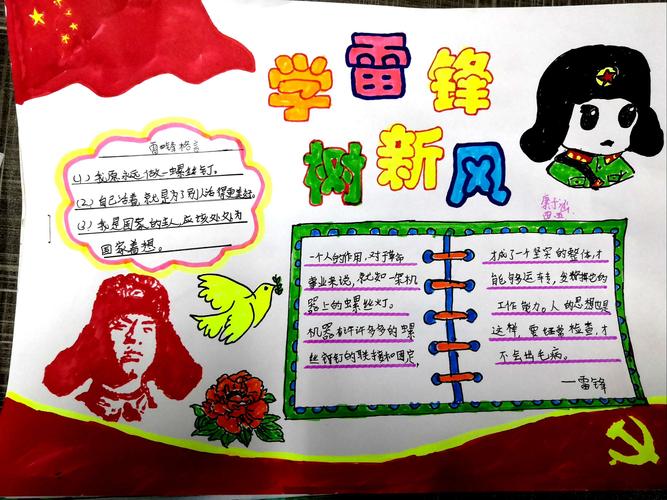 学雷锋
树新风
雷锋格言
(1)我愿永远做一螺丝钉。
(2)自己活着,就是为了别人活得更美好。
(3)我是国家的主人,应该处处为
国家着想。
一个人的作用,对于革命
事业来说,就如一架机
器上的螺丝灯。
机器有许许多多的螺
丝钉的联接和固定,
才成了一个坚实的整体,才
能够运转,发挥的
工作能力。人的思想也是
这样,要经常检查,才
不会出毛病。
——雷锋